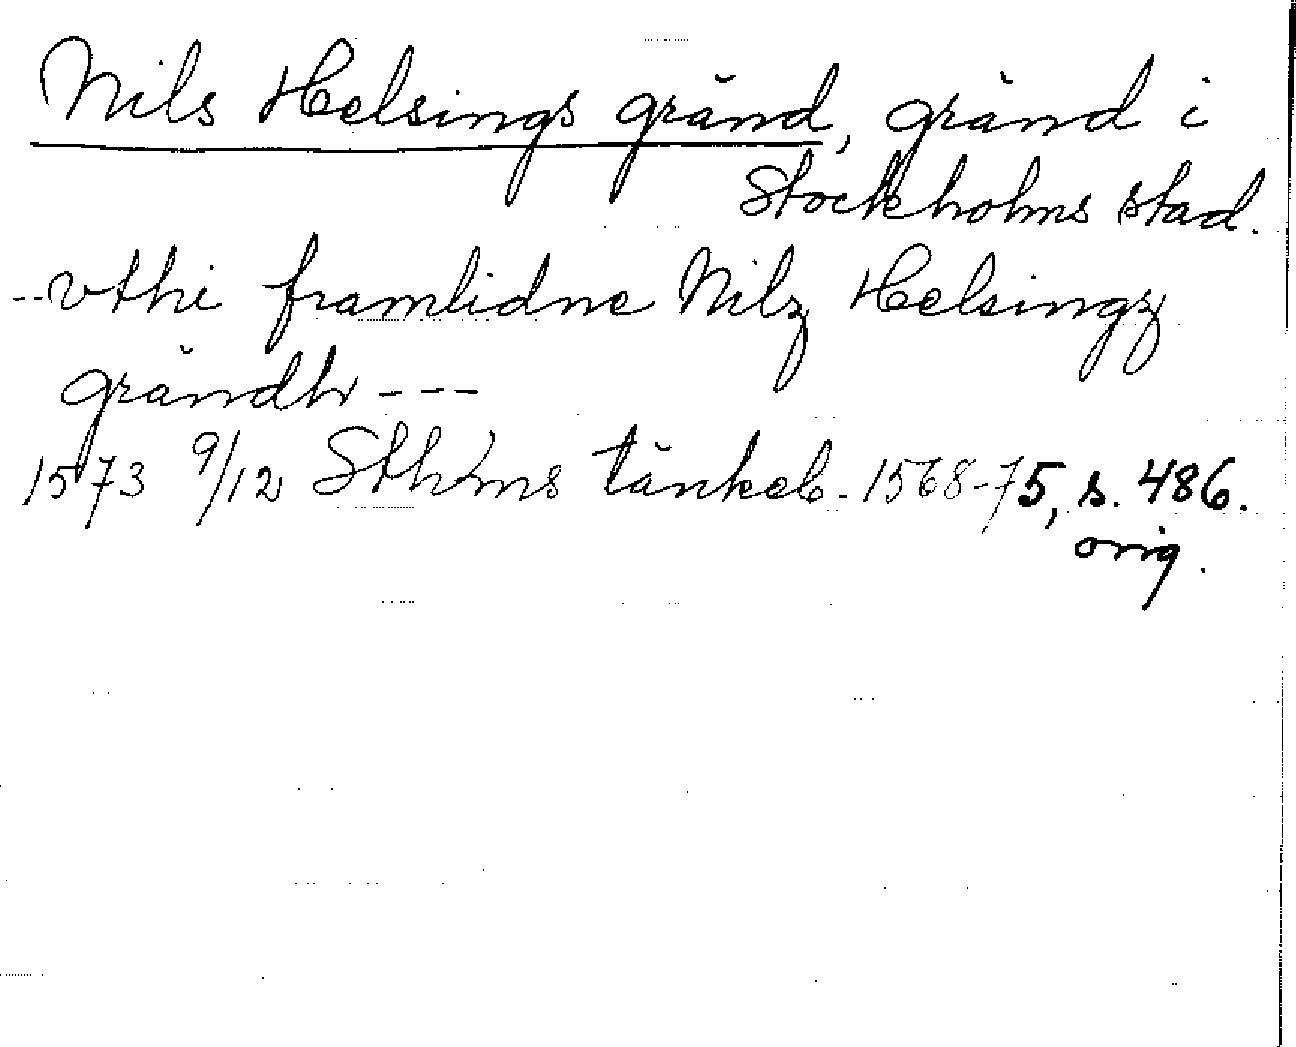 Nils Helsings gränd, gränd i
Stockholms stad.
--vthi framlidne Nilz Helsingz
grändh ---
1573 9/12 Sthms tänkeb. 1568-75, s. 486.
orig.